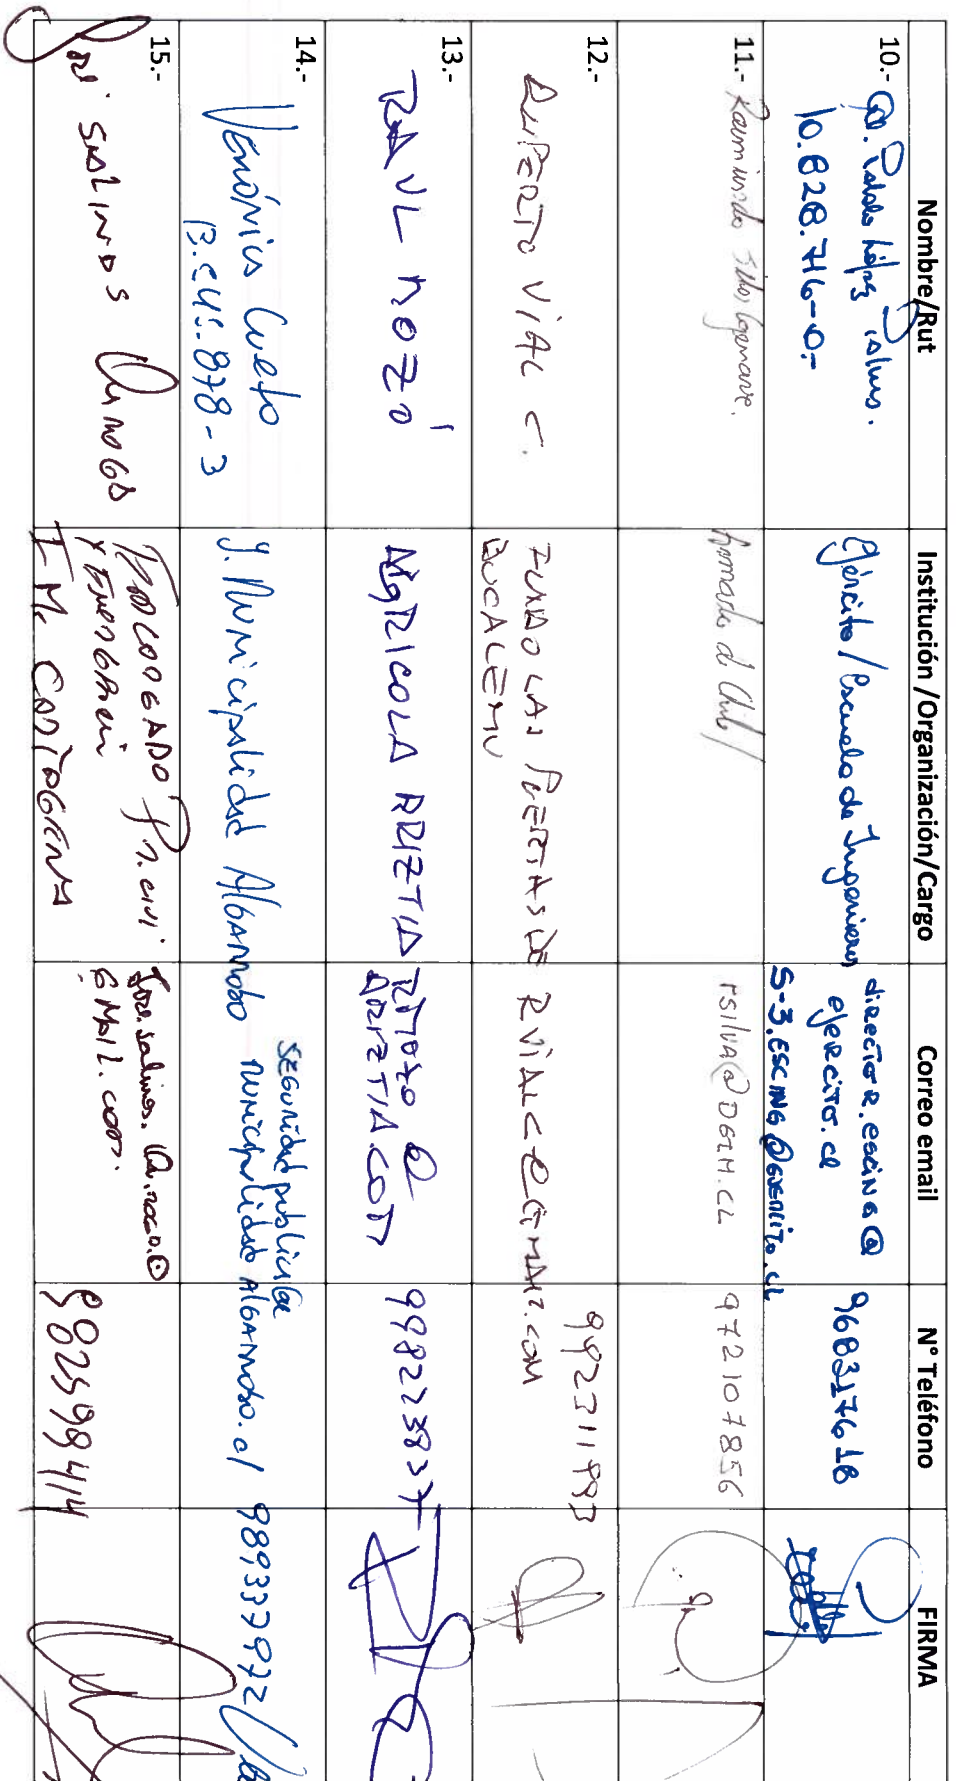 Nombre/Rut Institución /Organización/Cargo Correo email N° Teléfono FIRMA
10.- López
10.828.716-0.-
Ejército / Escuela de Ingenieros
director.escing@
ejercito.cl
S-3.ESCING@EJERCITO.CL
968317618
11.- Raimundo Silva
Armada d Chile /
rsilva@DGTM.CL
972107856
12.-
RUPERTO VIAL C.
FUNDO LAS PUERTAS DE
BUCALEMU
RVIALC@GMAIL.COM
13.-
RAUL MOZÓ
AGRICOLA ARIZTIA
RMOZO@
ARIZTIA.COM
998223837
14.-
Verónica Cueto
I. Municipalidad Algarrobo
Seguridad publica@
municipalidad algarrobo.cl
989337972
15.-
José SALINAS
Y EMERGENCIA
I M CARTAGENA
Jose.salinas.
GMAIL.COM.
982598414